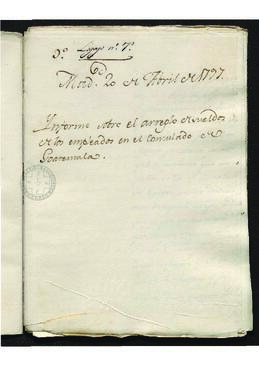 9º Legajo nº 7º
Md. 20 de Abril de 1797.
Ynforme sobre el arreglo de sueldos
de los empleados en el Consulado de
Goatemala.